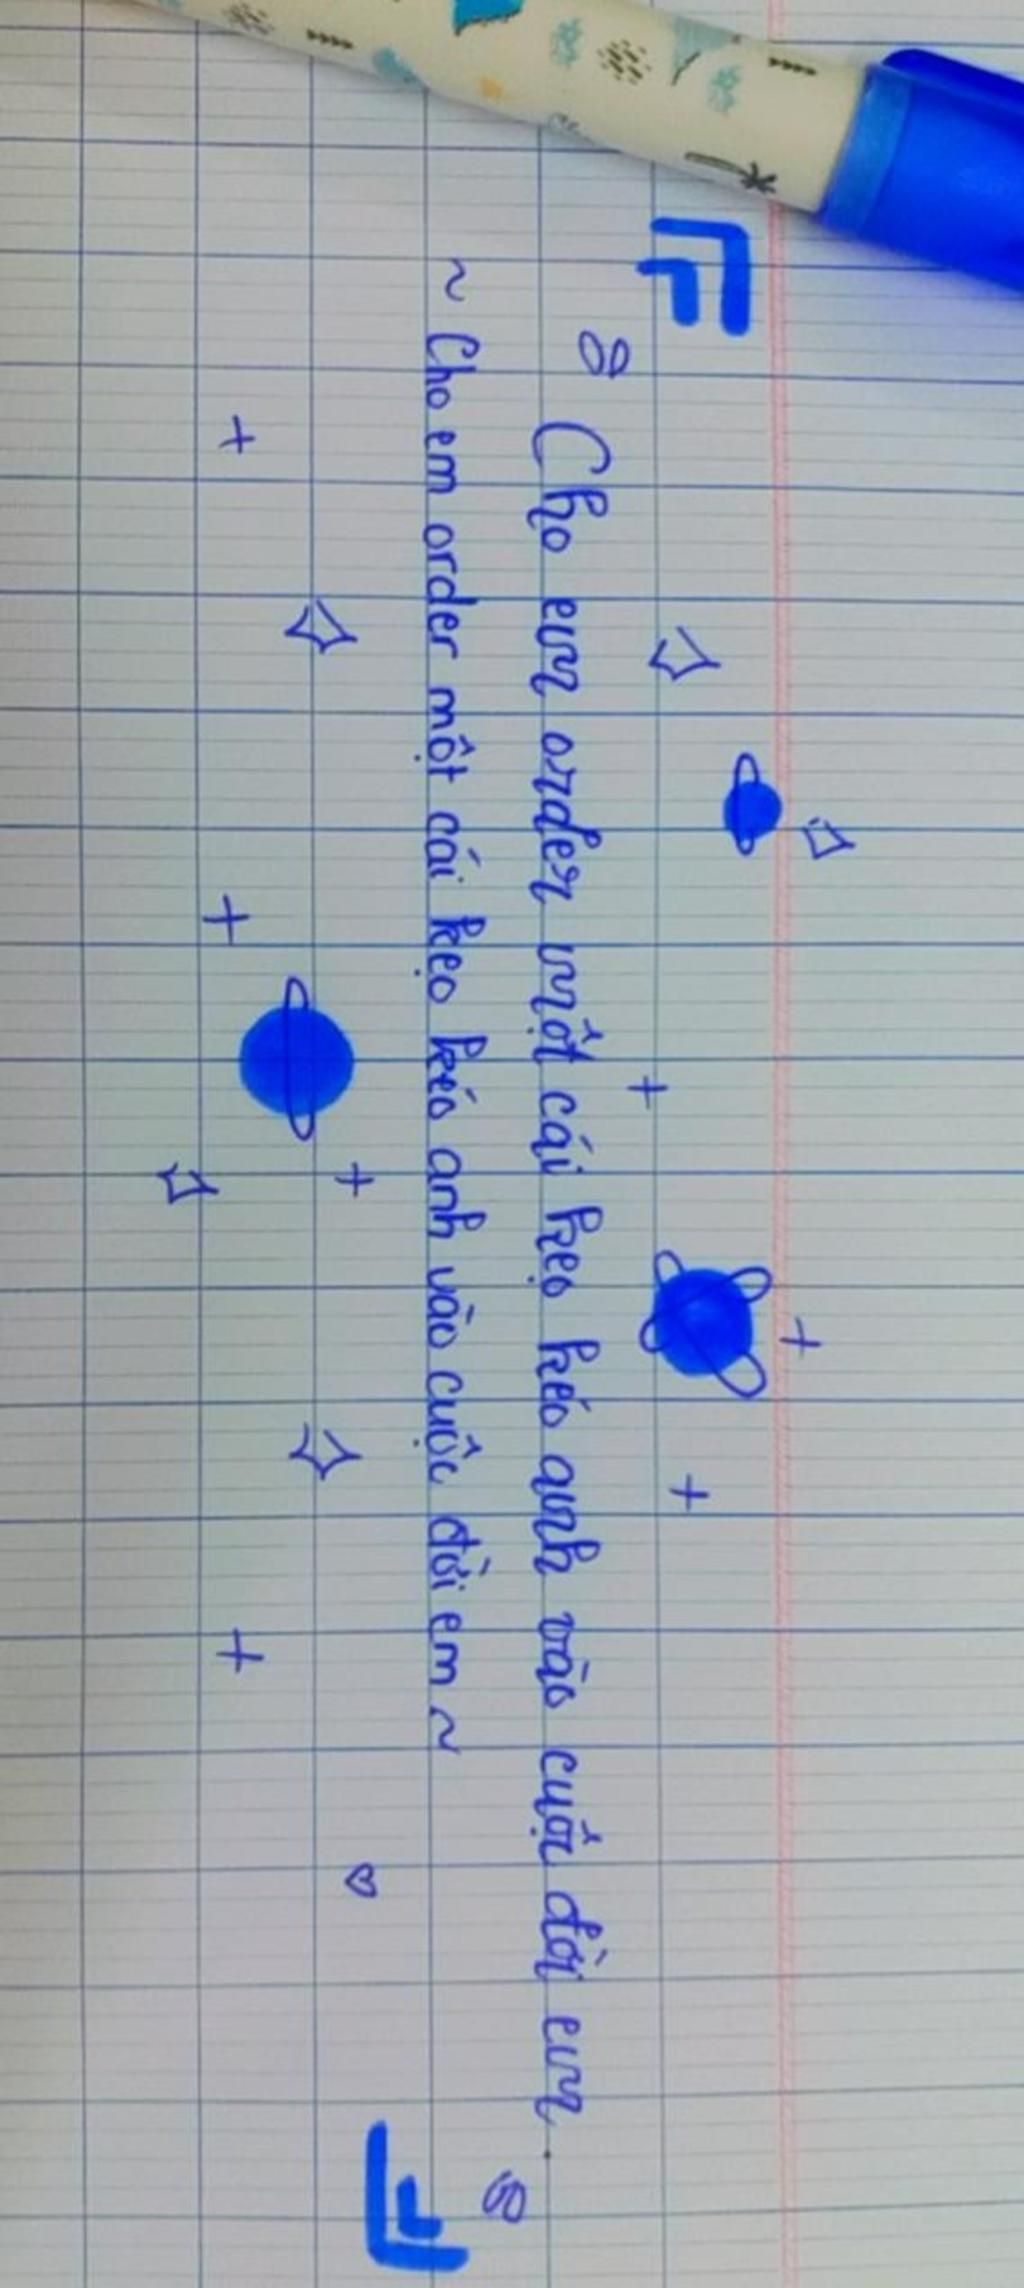 Cho em order một cái kẹo kéo anh vào cuộc đời em.
~ Cho em order một cái kẹo kéo anh vào cuộc đời em ~